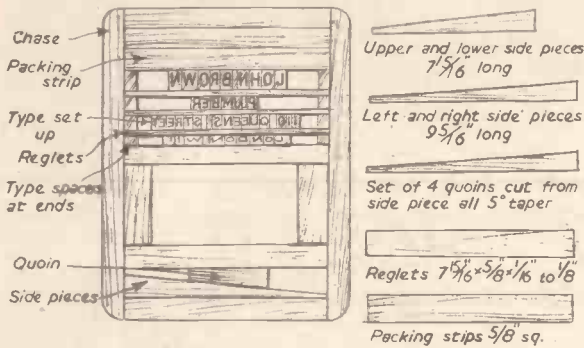 Chase
Packing
strip
Type set
up
Reglets
Type spaces
at ends
Quoin
Side pieces
JOHN BROWN
PLUMBER
QUEENS STREET
LONDON
Upper and lower side pieces
7 15/16" long
Left and right side pieces
9 5/16" long
Set of 4 quoins cut from
side piece all 5° taper
Reglets 7 15/16"×5/8"×1/16" to 1/8"
Packing stips 5/8" sq.